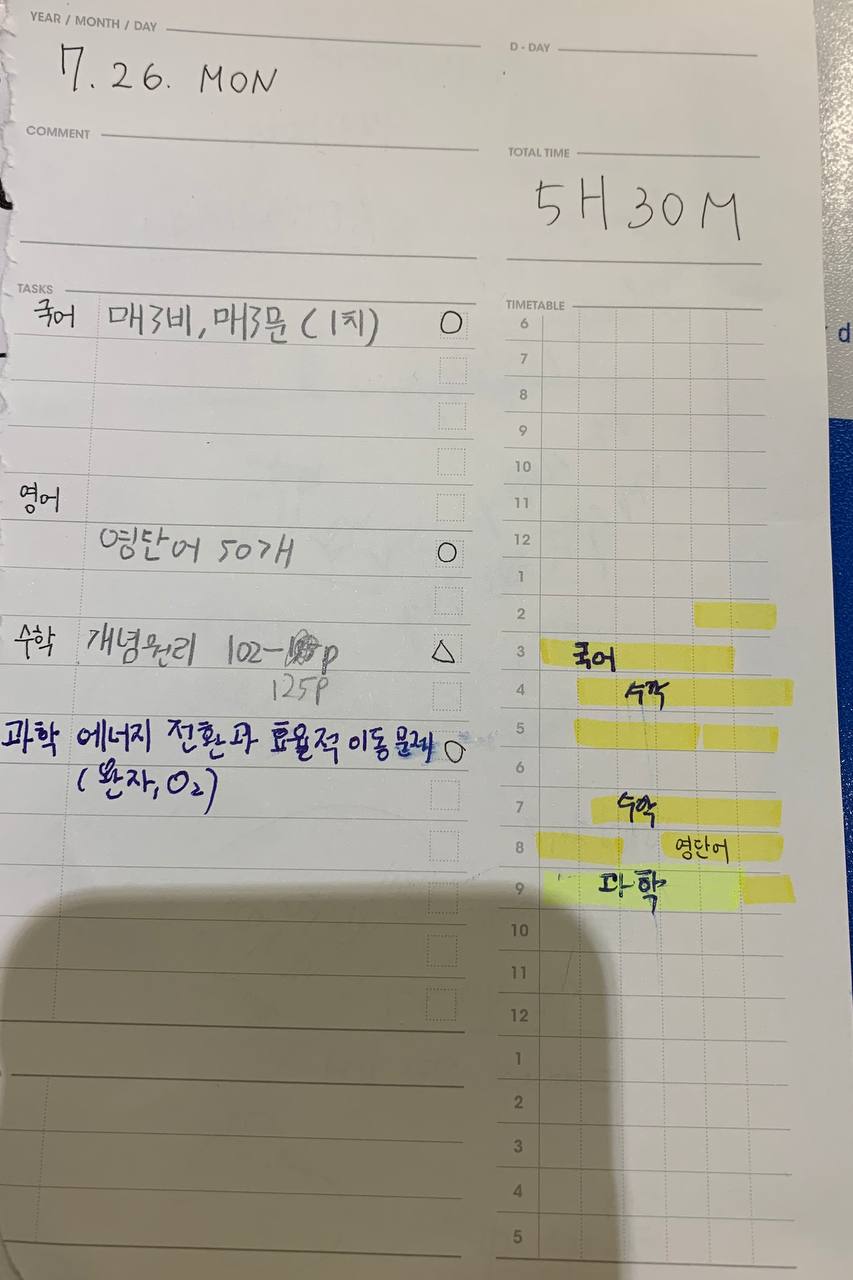 YEAR / MONTH / DAY
7. 26. MON
D - DAY
COMMENT
TOTAL TIME
5H 30M
TASKS
국어 매3비, 매3문 (1치)
영어
영단어 50개
수학 개념원리 102- p
125p
과학 에너지 전환과 효율적 이동 문제
(완자, O₂)
TIMETABLE
6
7
8
9
10
11
12
1
2
3 국어
4 수학
5
6
7 수학
8 영단어
9 과학
10
11
12
1
2
3
4
5
d